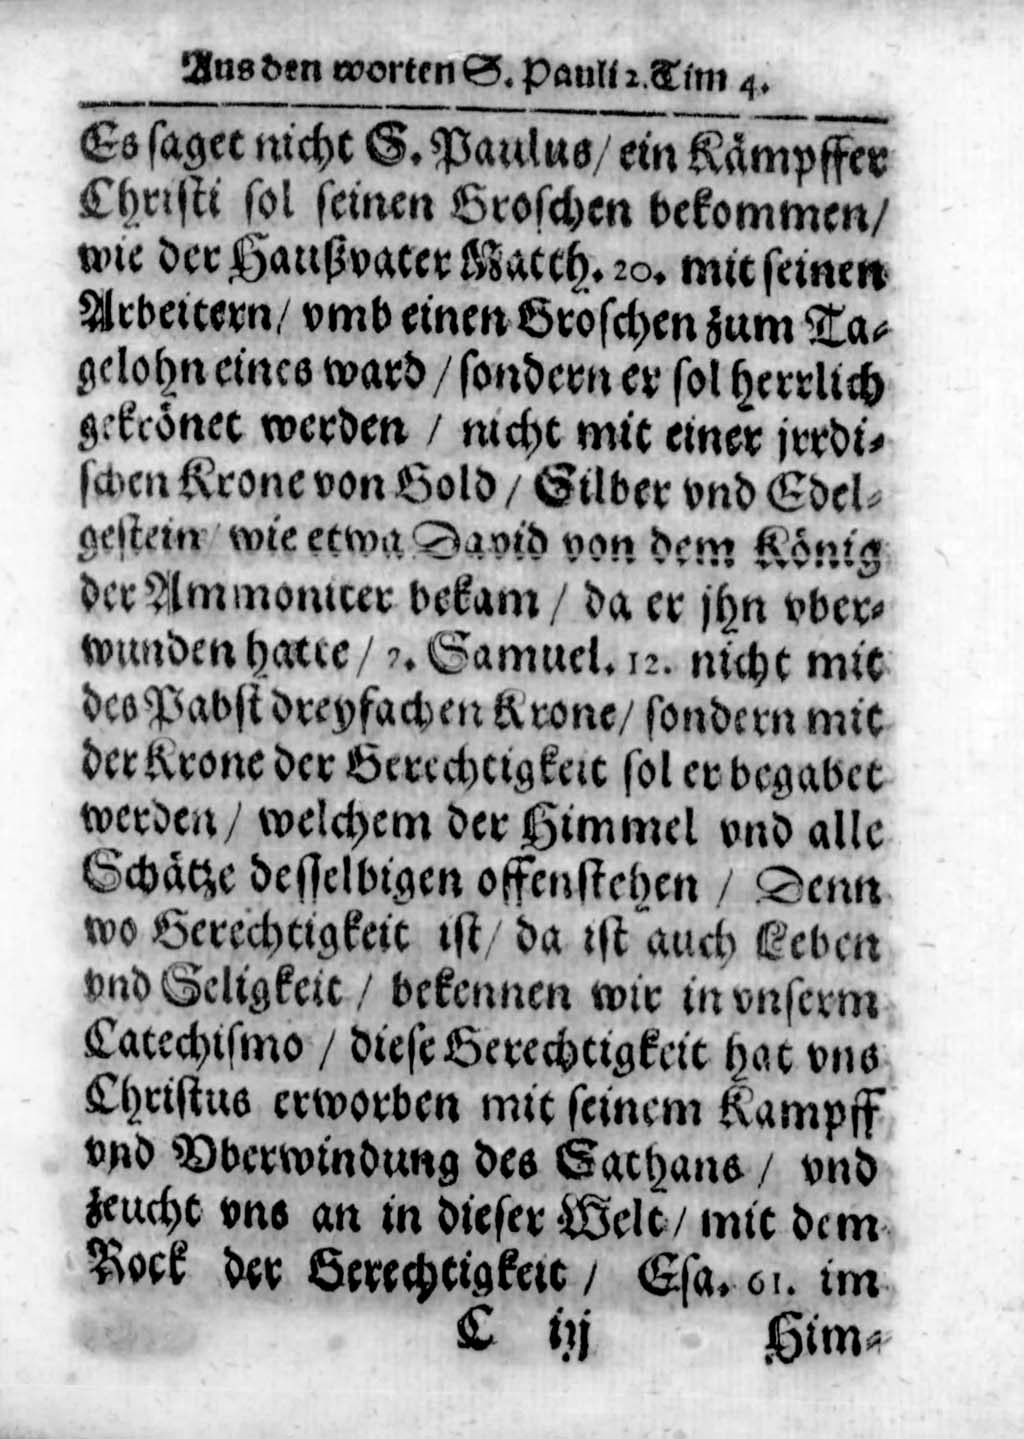 Aus den worten S. Pauli 2. Tim 4.
Es saget nicht S. Paulus/ ein Kämpffer
Christi sol seinen Groschen bekommen/
wie der Haußvater Matth. 20. mit seinen
Arbeitern/ vmb einen Groschen zum Ta-
gelohn eines ward / sondern er sol herrlich
gekrönet werden / nicht mit einer jrrdi-
schen Krone von Gold / Silber vnd Edel-
gestein/ wie etwa David von dem König
der Ammoniter bekam / da er jhn vber-
wunden hatte / 2. Samuel. 12. nicht mit
des Pabst dreyfachen Krone/ sondern mit
der Krone der Gerechtigkeit sol er begabet
werden / welchem der Himmel vnd alle
Schätze desselbigen offenstehen / Denn
wo Gerechtigkeit ist/ da ist auch Leben
vnd Seligkeit / bekennen wir in vnserm
Catechismo / diese Gerechtigkeit hat vns
Christus erworben mit seinem Kampff
vnd Vberwindung des Sathans / vnd
zeucht vns an in dieser Welt/ mit dem
Rock der Gerechtigkeit / Esa. 61. im
C iij Him-